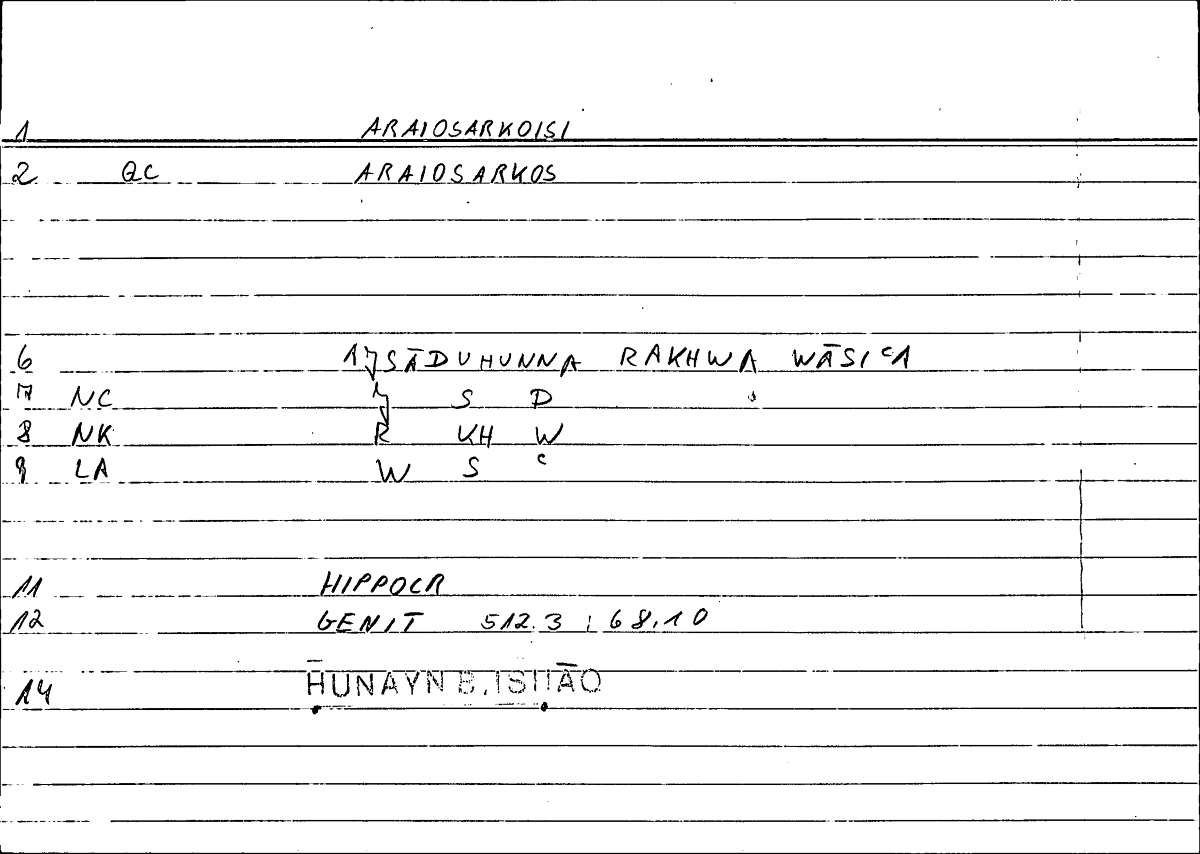 1 ARAIOSARKOISI
2 QC ARAIOSARKOS
6 AǦSĀDUHUNNA RAKHWA WĀSIʿA
7 NC Ǧ S D
8 NK R KH W
9 LA W S ʿ
11 HIPPOCR
12 GENIT 512.3 ; 68.10
14 ḤUNAYN B. ISḤĀQ